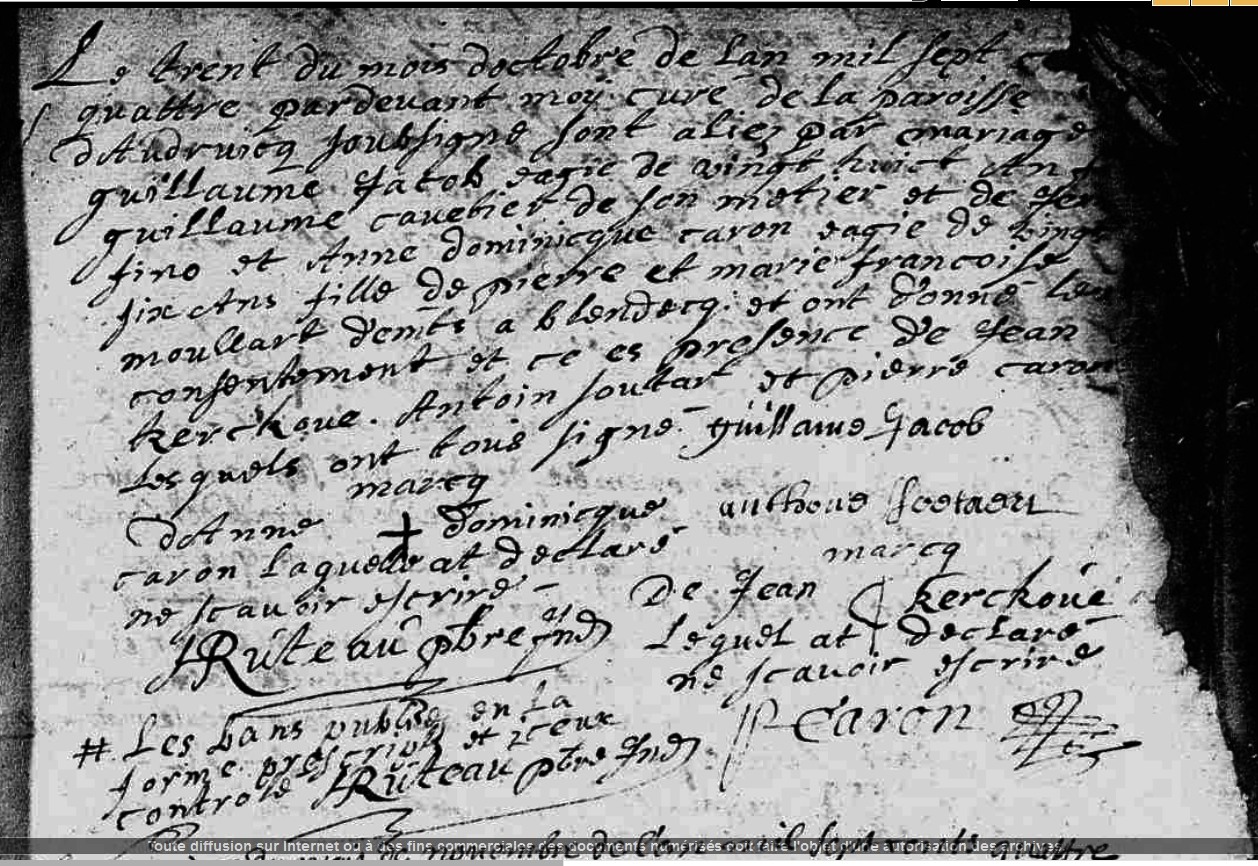 Le trent du mois doctobre de Lan mil sept
quattre pardevant moy curé de la paroisse
dAudruicq soubsigné sont aliez par mariage
guillaume Jacob eagie de vingt huict An
guillaume de son metier et de
et Anne dominicque caron eagie de vingt
six Ans fille de pierre et marie francoise
moullart demts a blendecq et ont donné leu
consentement et ce es presence de Jean
kerckove. Antoin soutart et pierre caron
Lesquels ont tous signé guillaume Jacob
marcq
dAnne dominicque
caron Laquelle at declaré
ne scavoir escrire
authone
marcq
De Jean kerckove
Lequel at declaré
ne scavoir escrire
JRuteau pbre
P Caron
# Les bans publié en La
forme prescript et iceux
controlé JRuteau pbre
novembre de lan mil sept cents quattre
Toute diffusion sur Internet ou à des fins commerciales des documents numérisés doit faire l'objet d'une autorisation des archives.